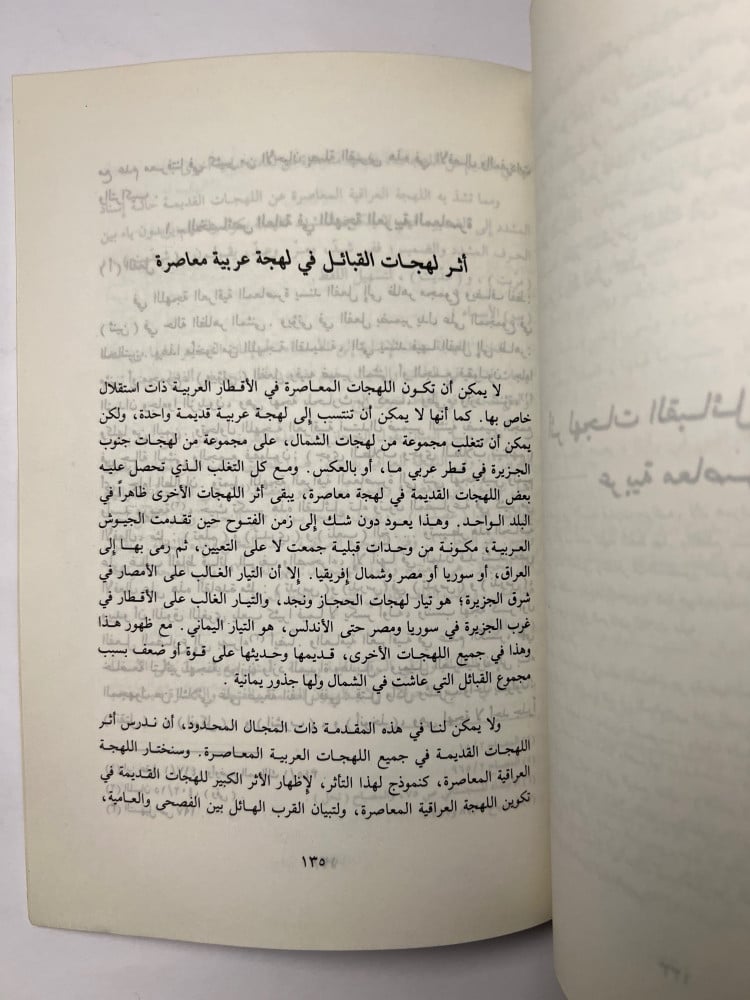 أثر لهجات القبائل في لهجة عربية معاصرة
لا يمكن أن تكون اللهجات المعاصرة في الأقطار العربية ذات استقلال
خاص بها. كما أنها لا يمكن أن تنتسب إلى لهجة عربية قديمة واحدة، ولكن
يمكن أن تتغلب مجموعة من لهجات الشمال، على مجموعة من لهجات جنوب
الجزيرة في قطر عربي ما، أو بالعكس. ومع كل التغلب الذي تحصل عليه
بعض اللهجات القديمة في لهجة معاصرة، يبقى أثر اللهجات الأخرى ظاهراً في
البلد الواحد. وهذا يعود دون شك إلى زمن الفتوح حين تقدمت الجيوش
العربية، مكونة من وحدات قبلية جمعت لا على التعيين، ثم رمى بها إلى
العراق، أو سوريا أو مصر وشمال إفريقيا. إلا أن التيار الغالب على الأمصار في
شرق الجزيرة؛ هو تيار لهجات الحجاز ونجد، والتيار الغالب على الأقطار في
غرب الجزيرة في سوريا ومصر حتى الأندلس، هو التيار اليماني. مع ظهور هذا
وهذا في جميع اللهجات الأخرى، قديمها وحديثها على قوة أو ضعف بسبب
مجموع القبائل التي عاشت في الشمال ولها جذور يمانية.
ولا يمكن لنا في هذه المقدمة ذات المجال المحدود، أن ندرس أثر
اللهجات القديمة في جميع اللهجات العربية المعاصرة. وسنختار اللهجة
العراقية المعاصرة، كنموذج لهذا التأثر، لإظهار الأثر الكبير للهجات القديمة في
تكوين اللهجة العراقية المعاصرة، ولتبيان القرب الهائل بين الفصحى والعامية،
١٣٥